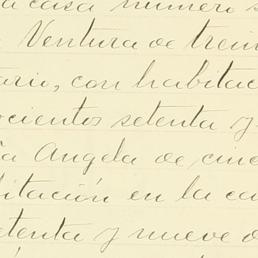 a casa numero s
Ventura de trein
tario, con habitac
ocientos setenta y
ña Angela de cinc
bitación en la ca
etenta y nueve d